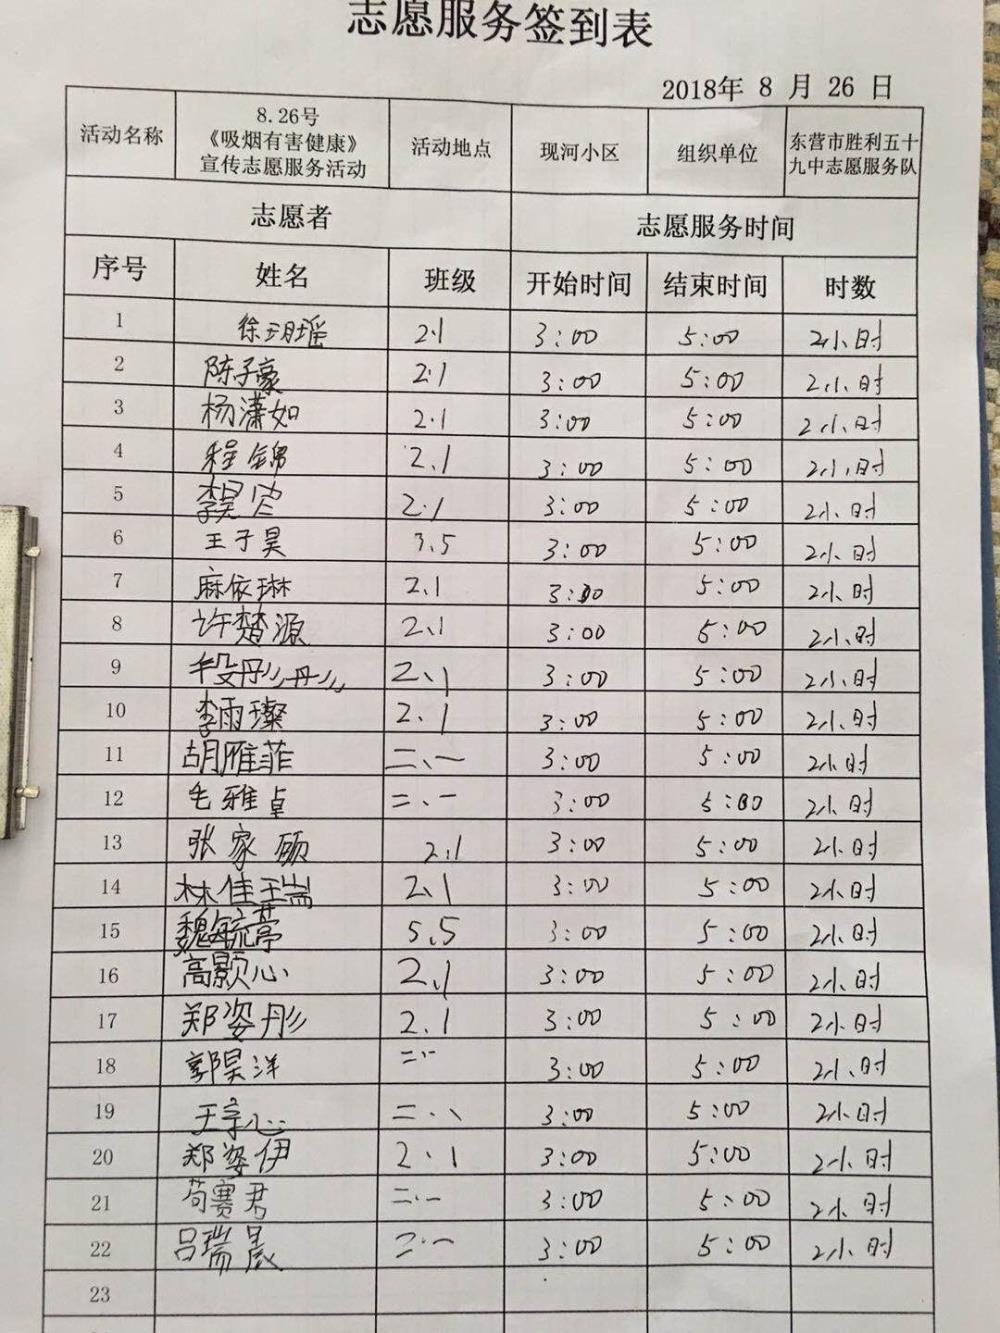 志愿服务签到表
2018年 8 月 26 日
活动名称 8.26号《吸烟有害健康》宣传志愿服务活动 活动地点 现河小区 组织单位 东营市胜利五十九中志愿服务队
志愿者 志愿服务时间
序号 姓名 班级 开始时间 结束时间 时数
1 徐玥瑶 2.1 3:00 5:00 2小时
2 陈子豪 2.1 3:00 5:00 2小时
3 杨潇如 2.1 3:00 5:00 2小时
4 程锦 2.1 3:00 5:00 2小时
5 李 2.1 3:00 5:00 2小时
6 王子昊 3.5 3:00 5:00 2小时
7 麻依琳 2.1 3:00 5:00 2小时
8 许楚源 2.1 3:00 5:00 2小时
9 段彤彤 2.1 3:00 5:00 2小时
10 李雨璨 2.1 3:00 5:00 2小时
11 胡雁菲 二.一 3:00 5:00 2小时
12 毛雅卓 二.一 3:00 5:00 2小时
13 张家硕 2.1 3:00 5:00 2小时
14 林佳瑞 2.1 3:00 5:00 2小时
15 魏毓葶 5.5 3:00 5:00 2小时
16 高颢心 2.1 3:00 5:00 2小时
17 郑姿彤 2.1 3:00 5:00 2小时
18 郭昊洋 二.一 3:00 5:00 2小时
19 王宇心 3:00 5:00 2小时
20 郑姿伊 2.1 3:00 5:00 2小时
21 苟赛君 二.一 3:00 5:00 2小时
22 吕瑞晟 二.一 3:00 5:00 2小时
23